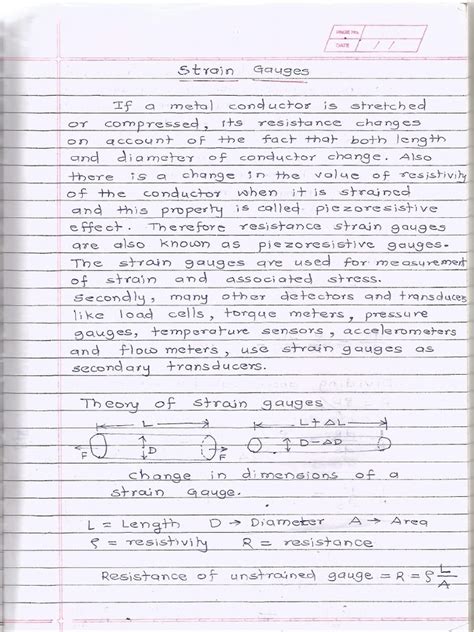 PAGE No.
DATE / /
Strain Gauges
If a metal conductor is stretched
or compressed, its resistance changes
on account of the fact that both length
and diameter of conductor change. Also
there is a change in the value of resistivity
of the conductor when it is strained
and this property is called piezoresistive
effect. Therefore resistance strain gauges
are also known as piezoresistive gauges.
The strain gauges are used for measurement
of strain and associated stress.
Secondly, many other detectors and transduces
like load cells, torque meters, pressure
gauges, temperature sensors, accelerometers
and flow meters, use strain gauges as
secondary transducers.
Theory of strain gauges
L L+ΔL
F D F D-ΔD
change in dimensions of a
strain Gauge.
L = Length D → Diameter A → Area
ρ = resistivity R = resistance
Resistance of unstrained gauge = R = ρ L/A